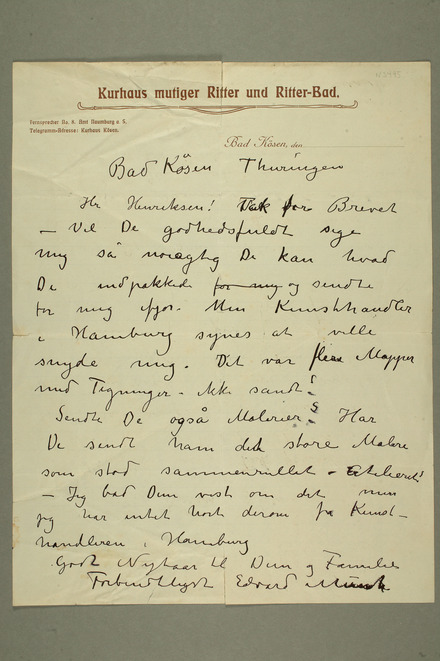 Kurhaus mutiger Ritter und Ritter-Bad.
Fernsprecher No. 8. Amt Naumburg a. S.
Telegramm-Adresse: Kurhaus Kösen.
Bad Kösen, den
Bad Kösen Thuringen
Hr Henriksen! Tak for Brevet
– Vil De godhedsfuldt sige
mig så nøiagtig De kan hvad
De indpakkede for mig og sendte
for mig ifjor. Min Kunsthandler
i Hamburg synes at ville
snyde mig. Det var flere Mapper
med Tegninger – Ikke sandt?
Sendte De også Malerier? Har
De sendt ham det store Maleri
som stod sammenrullet – Atelieret?
– Jeg bad Dem vist om det men
jeg har intet hørt derom fra Kunst-
handleren i Hamburg
Godt Nytaar til Dem og Familie
Forbindtligst Edvard Munch